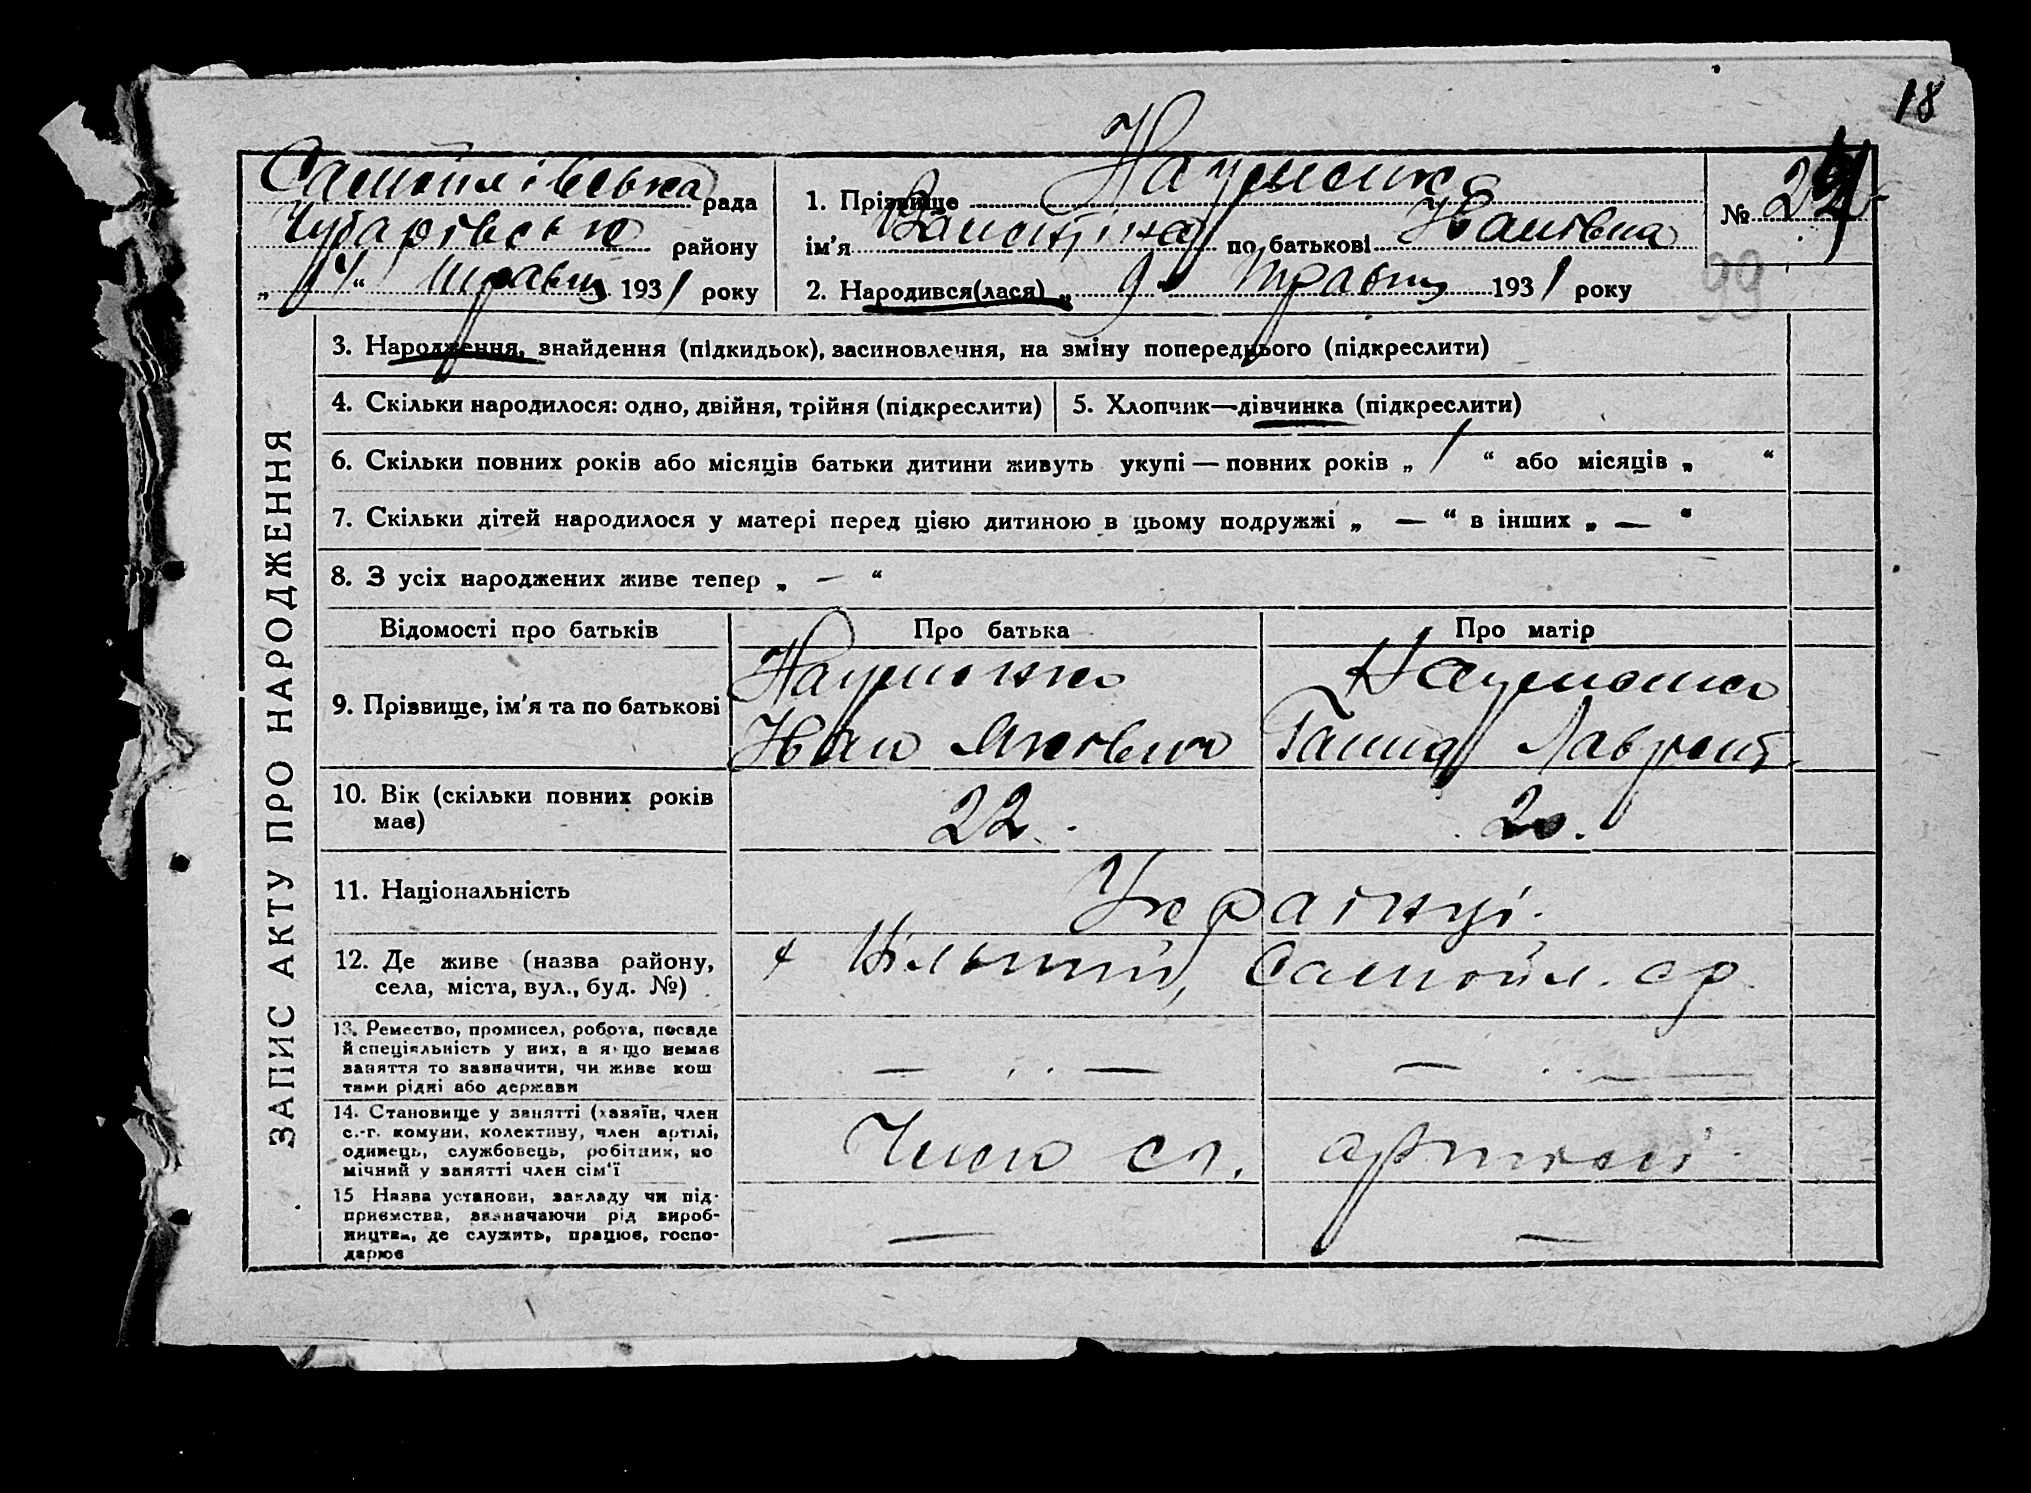 18
Самойлівська рада
Чубарівськ району
"14" травня 1931 року
1. Прізвище Науменко
ім'я Валентіна по батькові Іванівна
2. Народився(лася) „9" травня 1931 року
№
99
ЗАПИС АКТУ ПРО НАРОДЖЕННЯ
3. Народження, знайдення (підкидьок), засиновлення, на зміну попереднього (підкреслити)
4. Скільки народилося: одно, двійня, трійня (підкреслити)
5. Хлопчик—дівчинка (підкреслити)
6. Скільки повних років або місяців батьки дитини живуть укупі — повних років „ 1 “ або місяців „ “
7. Скільки дітей народилося у матері перед цією дитиною в цьому подружжі „ — “ в інших „ — “
8. З усіх народжених живе тепер „ — “
Відомості про батьків
Про батька
Про матір
9. Прізвище, ім'я та по батькові
Науменко
Іван Якович
Науменко
Ганна Лаврент.
10. Вік (скільки повних років
має)
22.
20.
11. Національність
Українці.
12. Де живе (назва району,
села, міста, вул., буд. №)
х Вільний, Самойл. с р.
13. Ремество, промисел, робота, посада
й спеціяльність у них, а якщо немає
заняття то зазначити, чи живе кош
тами рідні або держави
— .. —
— .. —
14. Становище у занятті (хазяїн, член
с.-г. комуни, колективу, член артілі,
одинець, службовець, робітник, по
мічний у занятті член сім'ї
Член сг. артілі
15 Назва установи, закладу чи під-
приємства, зазначаючи рід вироб-
ництва, де служить, працює, госпо-
дарює
—
—